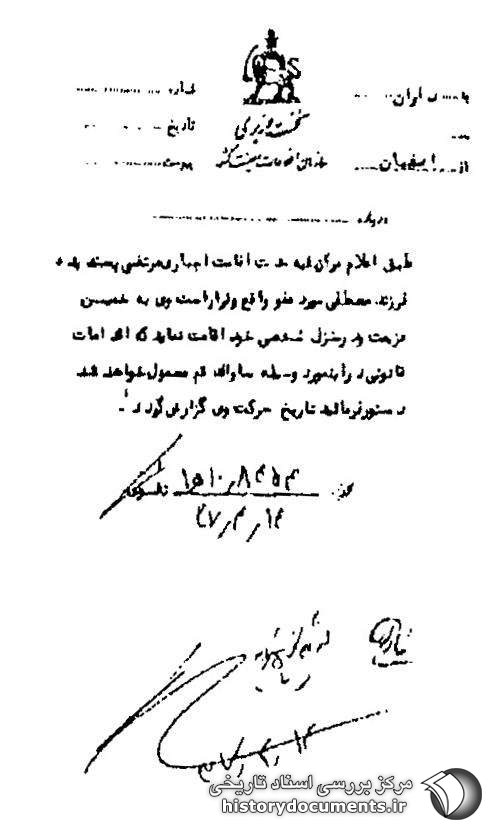 نخست وزیری
شماره
به ایران
تاریخ
سازمان اطلاعات و امنیت کشور
از اصفهان
پیوست
درباره
طبق اعلام مرکز مدت اقامت اجباری مرتضی پسندیده
فرزند مصطفی مورد عفو واقع و قرار است وی به خمین
عزیمت و در منزل شخصی خود اقامت نماید که اقدامات
قانونی در اینمورد وسیله ساواک قم معمول خواهد شد
دستور فرمائید تاریخ حرکت وی گزارش گردد
۴۷٫۴٫۱۴
۴۷٫۴٫۱۴
مرکز بررسی اسناد تاریخی
historydocuments.ir